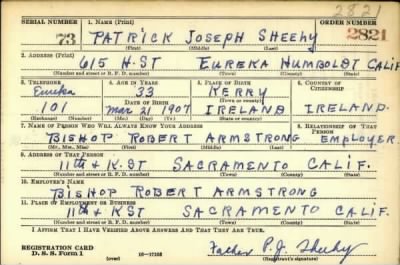 2821
SERIAL NUMBER 1. NAME (Print) ORDER NUMBER
73 PATRICK JOSEPH SHEEHY 2821
(First) (Middle) (Last)
2. ADDRESS (Print)
615 H. ST EUREKA HUMBOLDT CALIF
(Number and street or R. F. D. number) (Town) (County) (State)
3. TELEPHONE 4. AGE IN YEARS 5. PLACE OF BIRTH 6. COUNTRY OF CITIZENSHIP
Eureka 33 KERRY
DATE OF BIRTH (Town or county)
101 Mar 21 1907 IRELAND IRELAND.
(Exchange) (Number) (Mo.) (Day) (Yr.) (State or country)
7. NAME OF PERSON WHO WILL ALWAYS KNOW YOUR ADDRESS 8. RELATIONSHIP OF THAT PERSON
BISHOP ROBERT ARMSTRONG EMPLOYER.
(Mr., Mrs., Miss) (First) (Middle) (Last)
9. ADDRESS OF THAT PERSON
11th & K. ST SACRAMENTO CALIF.
(Number and street or R. F. D. number) (Town) (County) (State)
10. EMPLOYER'S NAME
BISHOP ROBERT ARMSTRONG
11. PLACE OF EMPLOYMENT OR BUSINESS
11th & K ST SACRAMENTO CALIF.
(Number and street or R. F. D. number) (Town) (County) (State)
I AFFIRM THAT I HAVE VERIFIED ABOVE ANSWERS AND THAT THEY ARE TRUE.
REGISTRATION CARD
D. S. S. Form 1 (over) 16-17105 Father P.J. Sheehy
(Registrant's signature)